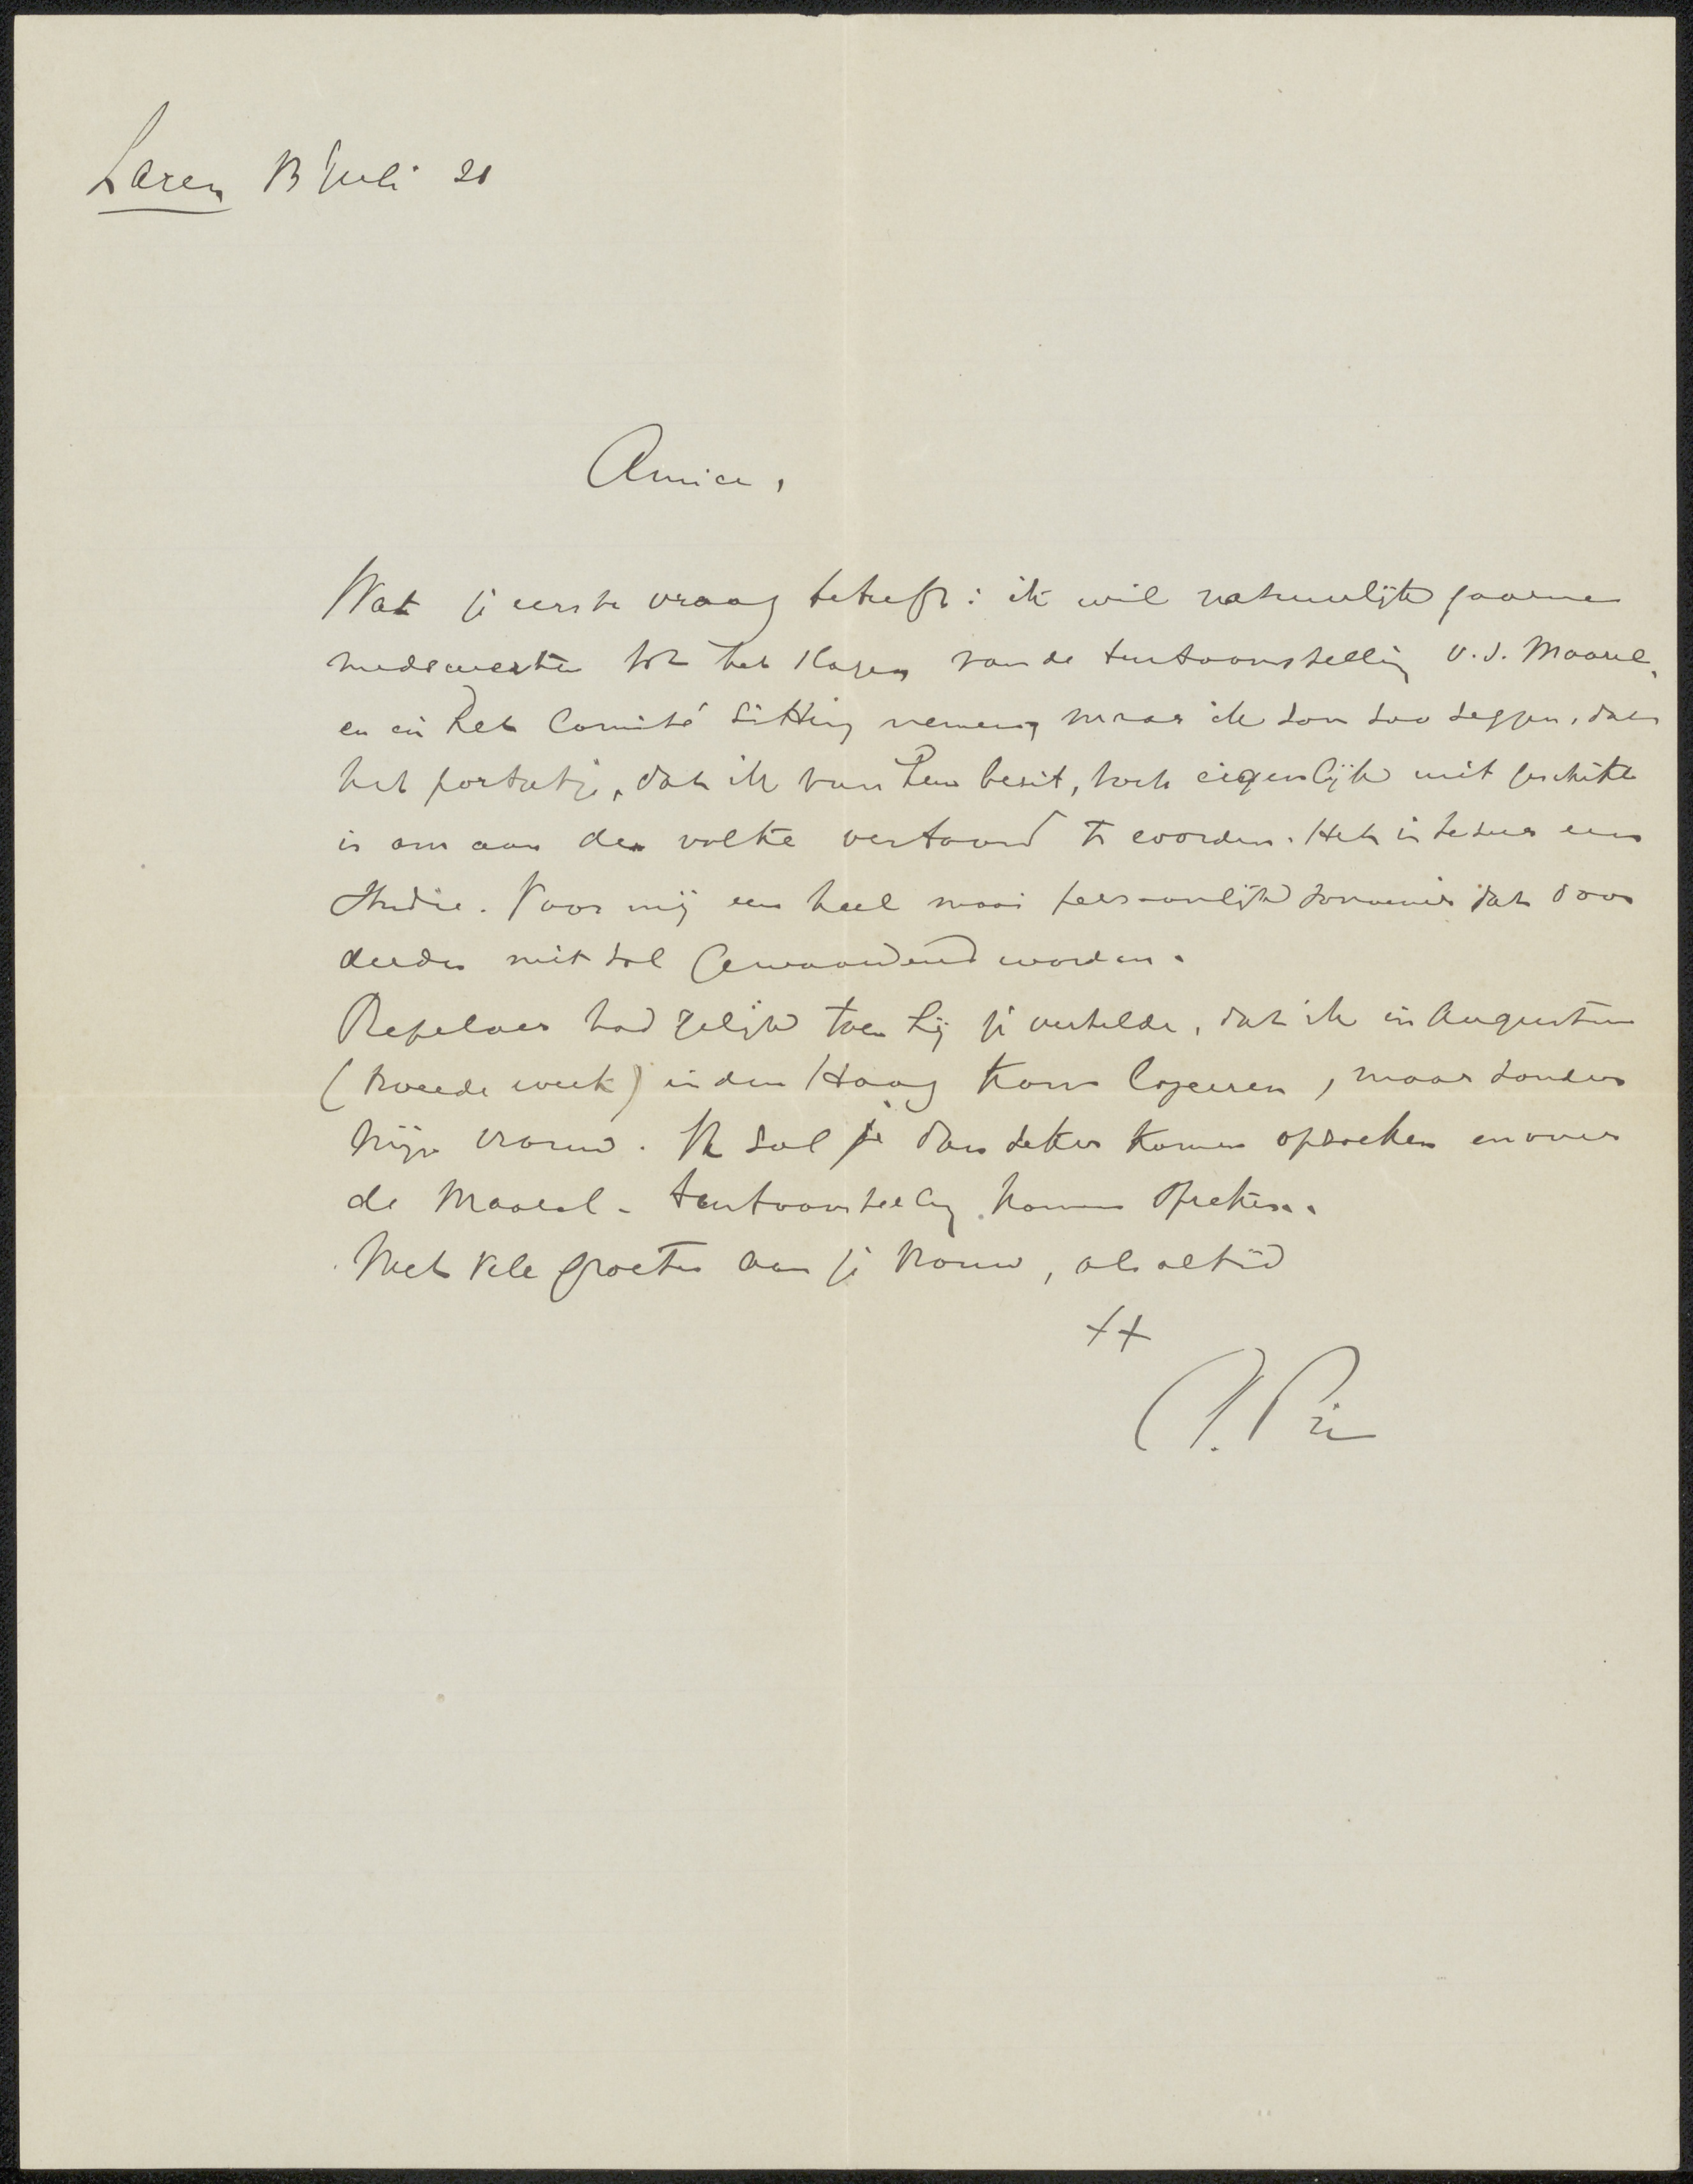 Laren 13 Juli 21
Amice,
Wat je eerste vraag betreft: ik wil natuurlijk gaarne
medewerken tot het slagen van de tentoonstelling v.d. Maarel,
en in het Comité zitting nemen, maar ik zou zoo zeggen, dat
het portretje, dat ik van hem bezit, toch eigenlijk niet geschikt
is om aan den volke vertoond te worden. Het is zeker een
studie. Voor mij een heel mooi persoonlijk souvenir dat door
derden niet zal gewaardeerd worden.
Repelaer had gelijk toen hij je vertelde, dat ik in Augustus
(tweede week) in den Haag kom logeeren, maar zonder
mijn vrouw. Ik zal je dan zeker komen opzoeken en over
de Maarel-tentoonstelling komen spreken.
Met vele groeten aan je vrouw, als altijd
tt